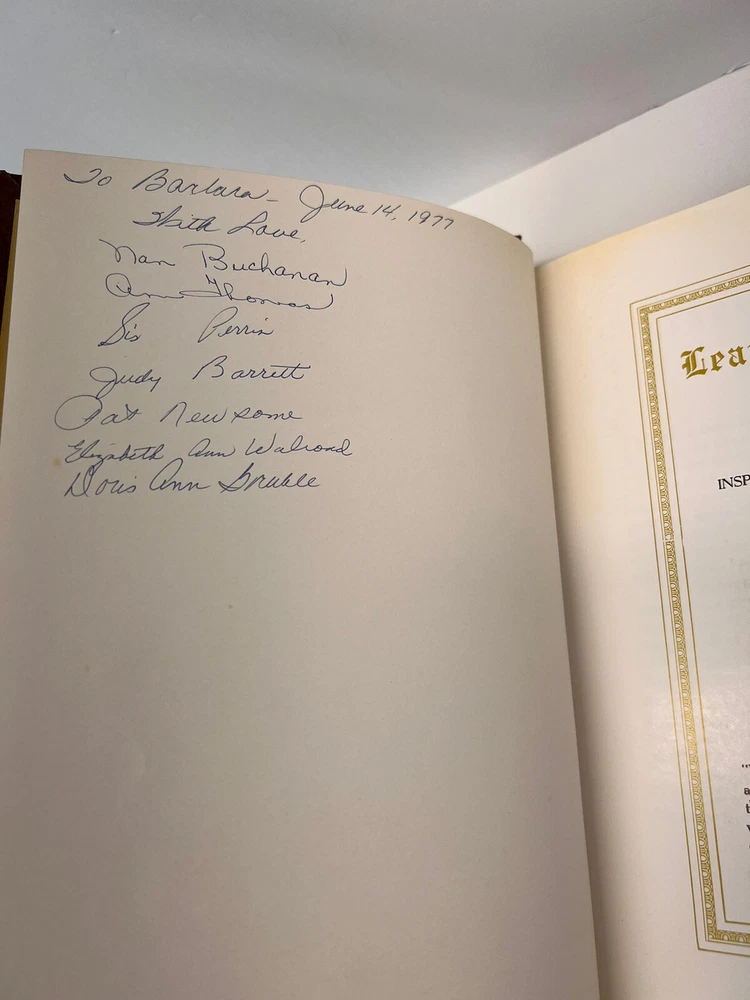 To Barbara - June 14, 1977
With Love,
Nan Buchanan
Ann Thomas
Sis Perrin
Judy Barrett
Pat Newsome
Elizabeth Ann Walrond
Doris Ann
Lea
INSP